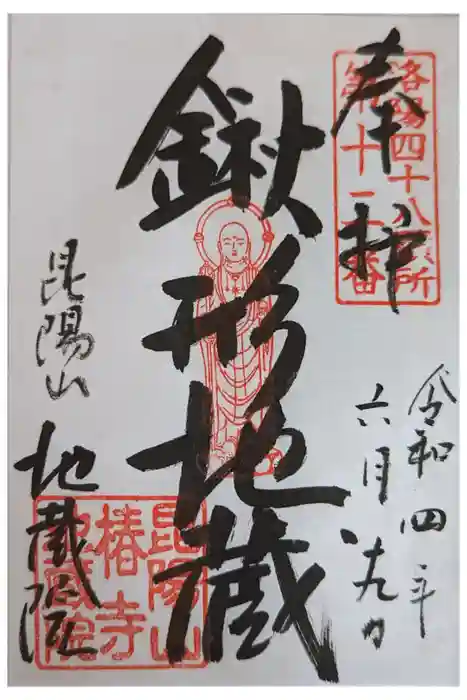 奉拝
洛陽四十八願所
令和四年
六月
鍬形地蔵
昆陽山
地蔵院
昆陽山
椿寺
地蔵院